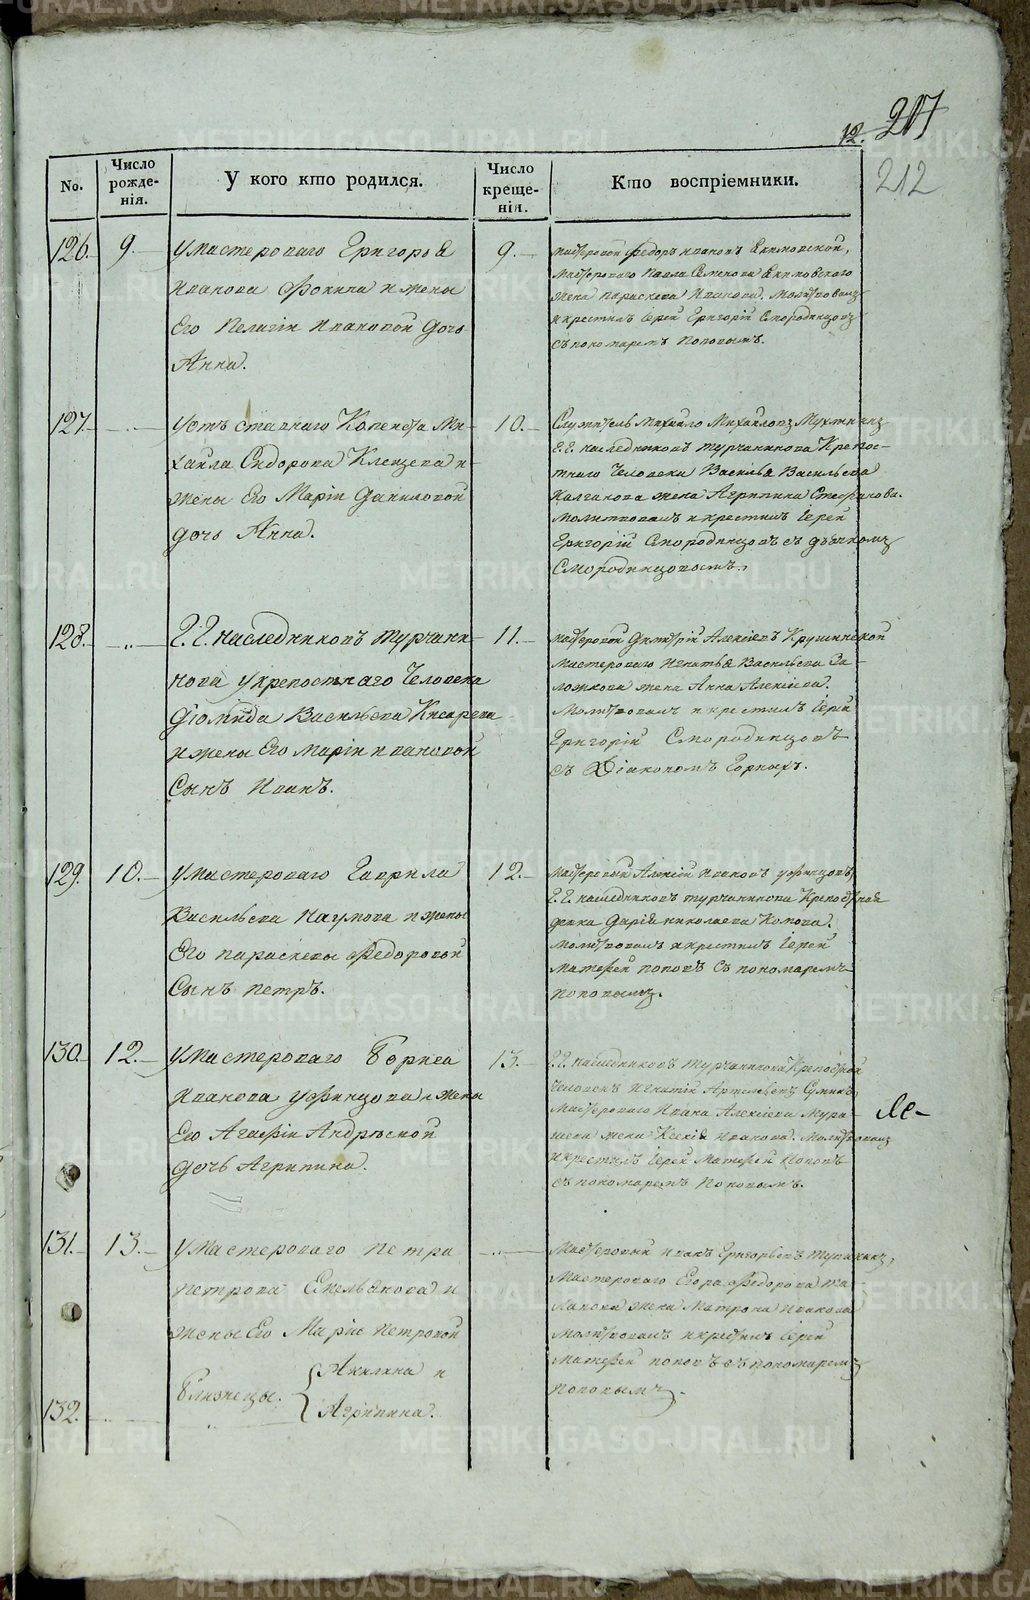 12. 217
212
No.
Число рожде-нія.
У кого кто родился.
Число креще-нія.
Кто воспріемники.
126. 9.
у мастероваго Григорья
Иванова Фокина и жены
Его Пелагіи Ивановой дочь
Анна.
9.
мастеровой Федоръ Ивановъ Екимовской,
мастероваго Павла Семенова Екимовского
жена параскева Иванова. Молитвовалъ
и крестилъ Іерей Григорій Смородинцовъ
съ пономаремъ Поповымъ.
127.
Ми-
хаила Сидорова Клепцева и
жены Его Маріи Даниловой
дочь Анна.
10.
Служитель Михайло Михайловъ
Г.Г. наследниковъ Турчанинова Крепос-
тнаго Человека Василья Васильева
Калганова жена Агрипина Стефанова.
молитвовалъ и крестилъ Іерей
Григорій Смородинцовъ съ дьячкомъ
Смородинцовымъ.
128.
Г.Г. наследниковъ Турчани-
нова у крепостнаго Человека
Діомида Васильева Кисарева
и жены Его Маріи Ивановой
Сынъ Иванъ.
11.
мастеровой Димитрій Алексіевъ Крушинской
мастероваго Игнатья Васильева За-
ложнова жена Анна Алексіева.
Молитвовалъ и крестилъ Іерей
Григорій Смородинцовъ
съ Діакономъ Горныхъ.
129. 10.
у мастероваго Гаврила
Васильева Наумова и жены
Его параскевы Федоровой
Сынъ петръ.
12.
мастеровый Алексій Ивановъ уфинцовъ,
Г.Г. наследниковъ турчанинова Крепостная
девка Дарія николаева Комова.
молитвовалъ и крестилъ Іерей
Матфей поповъ съ пономаремъ
поповымъ.
130. 12.
у мастероваго Бориса
Иванова уфинцова и жены
Его Агафіи Андреевой
дочь Агрипина.
13.
Г.Г. наследниковъ Турчанинова Крепостной
Человекъ Игнатій Артемьевъ Сунинъ,
Мастероваго Ивана Алексіева Мура-
шева жена Ксенія Иванова. Молитвовалъ
и крестилъ Іерей Матфей Поповъ
съ пономаремъ Поповымъ.
131. 13.
у мастероваго петра
петрова Емельянова и
жены Его Маріи петровой
Близнецы. { Акилина и
Агрипина.
Мастеровый иванъ Григорьевъ
Мастероваго Егора Федорова
жена Матрона Иванова
молитвовалъ и крестилъ Іерей
Матфей поповъ съ пономаремъ
поповымъ.
132.
METRIKI.GASO-URAL.RU